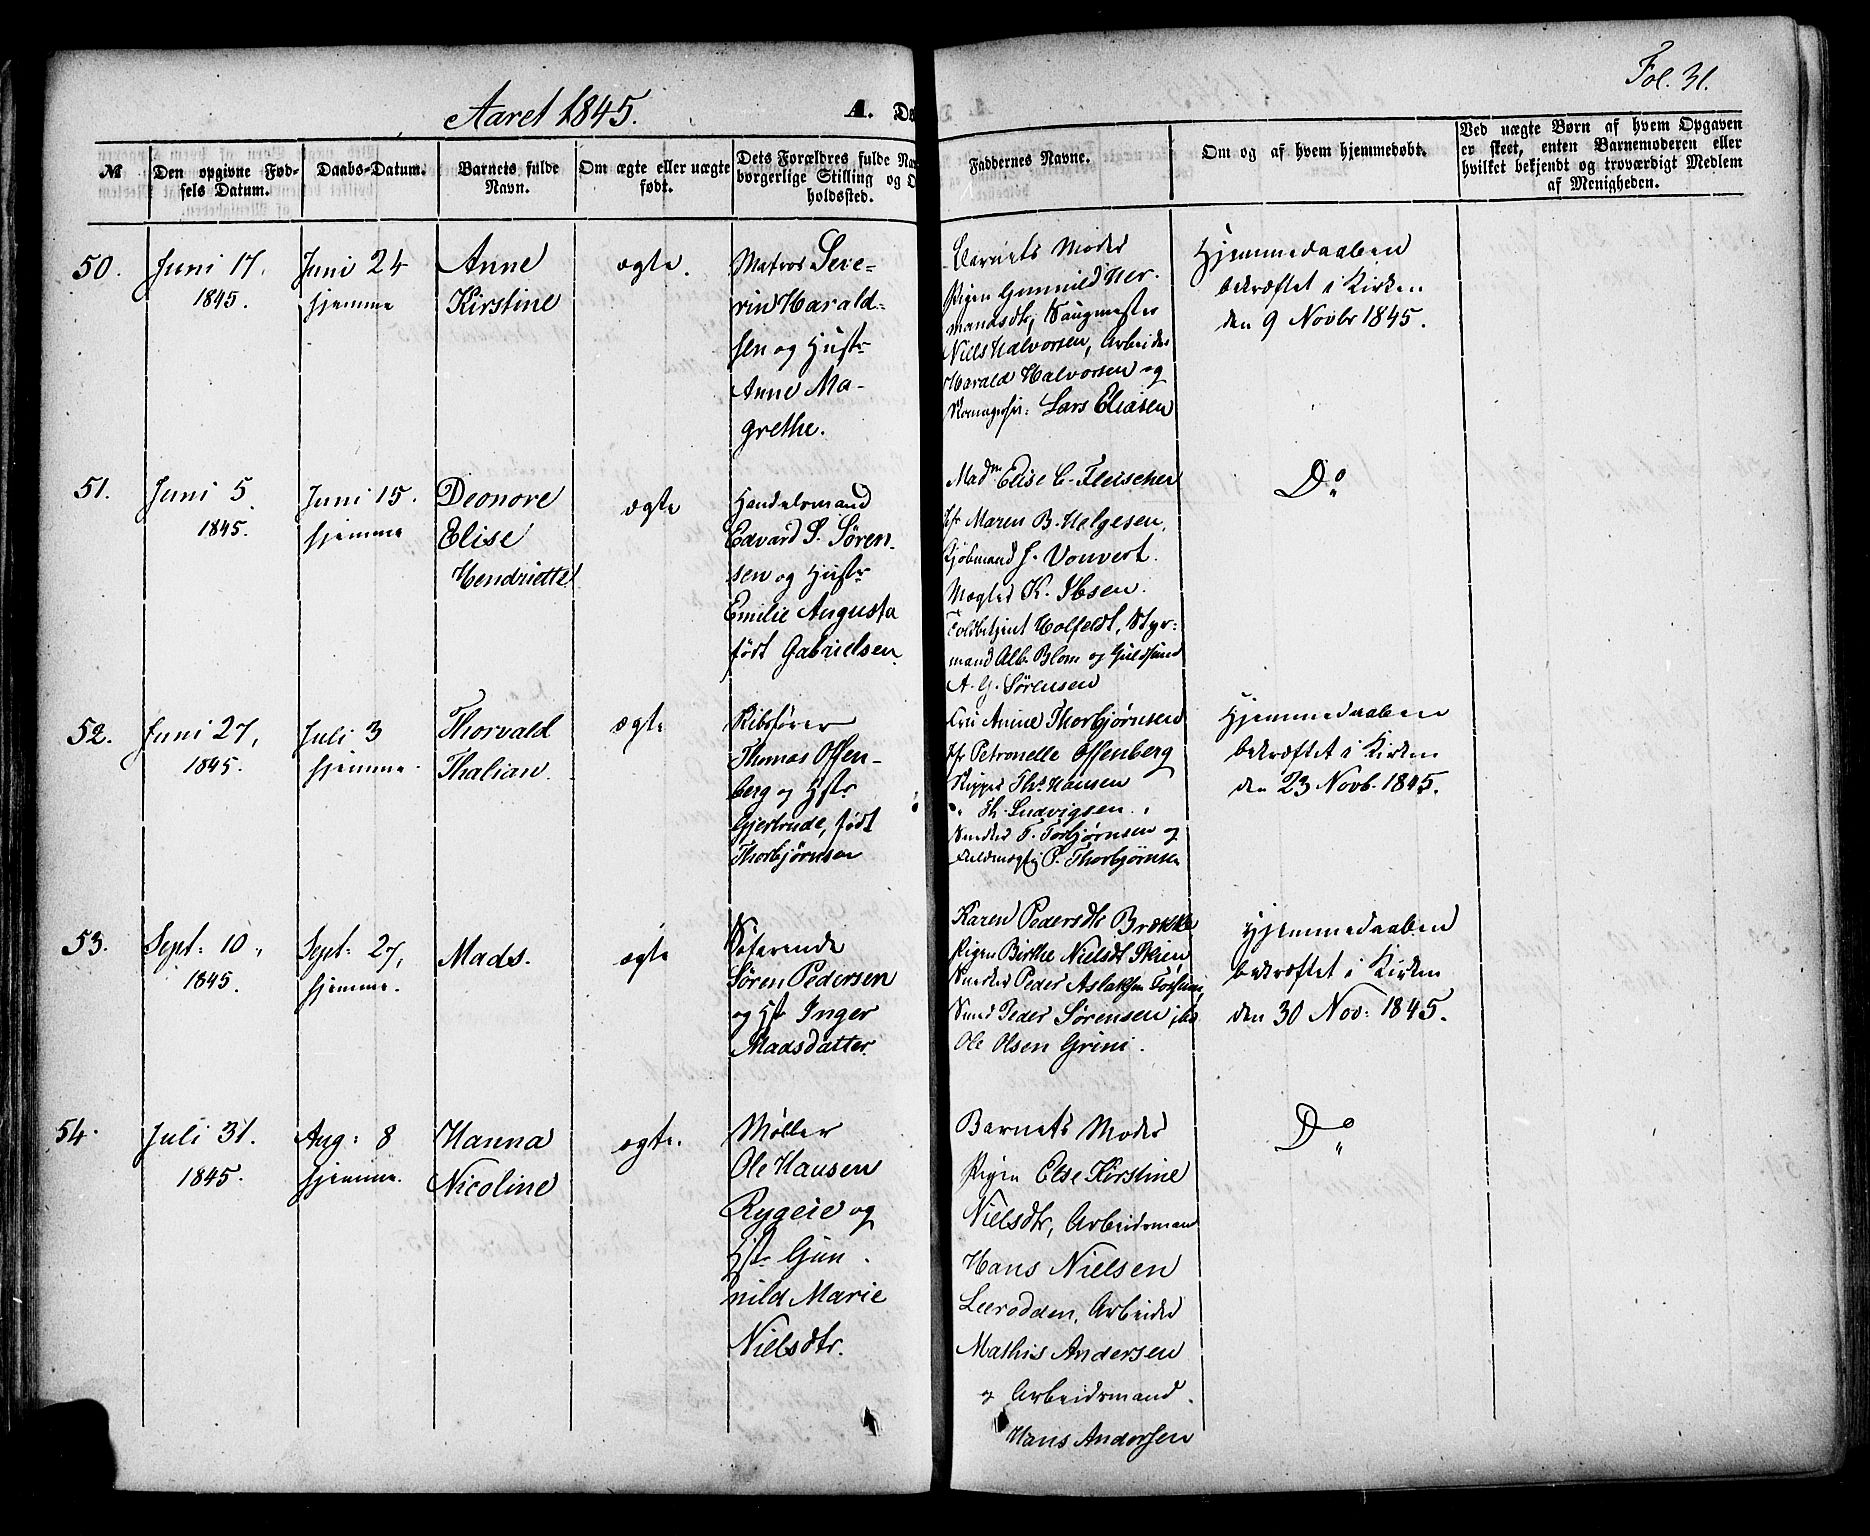 Fol. 31.
Aaret 1845.
A.
№
Den opgivne Fød-
sels Datum.
Daabs-Datum.
Barnets fulde
Navn.
Om ægte eller uægte
født.
Dets Forældres fulde
borgerlige Stilling og
holdssted.
Faddernes Navne.
Om og af hvem hjemmedøbt.
Ved uægte Børn af hvem Opgaven
er skeet, enten Barnemoderen eller
hvilket bekjendt og troværdigt Medlem
af Menigheden.
50.
Juni 17.
1845.
Juni 24
hjemme
Anne
Kirstine
ægte.
Matros Seve-
rin Harald-
sen og Hustr
Anne Ma-
grethe.
Barnets Moder
Pigen Gunnild Her-
mandsdtr, Saugmester
Niels Halvorsen, Arbeider
Harald Halvorsen og
Lars Eliasen
Hjemmedaaben
bekræftet i Kirken
den 9 Novbr 1845.
51.
Juni 5.
1845.
Juni 15.
hjemme
Deonore
Elise
Hendriette
ægte
Handelsmand
Edvard S. Søren-
sen og Hustr
Emilie Augusta
født Gabrielsen.
Madm Elise C. Fleischer
Jfr Maren B. Helgesen,
Kjøbmand J. Vonvert.
Mægler K. Ibsen.
Toldbetjent Holfeldt, Styr-
mand Alb. Blom og Guldsmed
A. G. Sørensen
Do
52.
Juni 27,
1845.
Juli 3
hjemme.
Thorvald
Thalian.
ægte
Skibsfører
Thomas Offen-
berg og Hstr
Gjertrude, født
Thorbjørnsen
Fru Amine Thorbjørnsen
Jfr Petronelle Offenberg
Skipper Ths Hansen
" Th. Ludvigsen.
Snedker T. Torbjørnsen og
Fuldmægtig P. Thorbjørnsen
Hjemmedaaben
bekræftet i Kirken
den 23 Novb. 1845.
53.
Sept: 10,
1845.
Sept: 27,
hjemme.
Mads.
ægte
Søfarende
Søren Pedersen
og Hst Inger
Madsdatter.
Karen Pedersdtr Brække
Pigen Birthe Nielsdtr Skien
Snedker Peder Aslaksen
Smed Peder Sørensen ibd
Ole Olsen Grini.
Hjemmedaaben
bekræftet i Kirken
den 30 Nov: 1845.
54.
Juli 31.
1845.
Aug: 8
hjemme.
Hanna
Nicoline
ægte.
Møller
Ole Hansen
Rygeie og
Hstr Gun-
nild Marie
Nielsdtr.
Barnets Moder
Pigen Else Kirstine
Nielsdtr, Arbeidsmand
Hans Nielsen
Leerodden, Arbeider
Mathis Andersen
og Arbeidsmand
Hans Andersen
Do